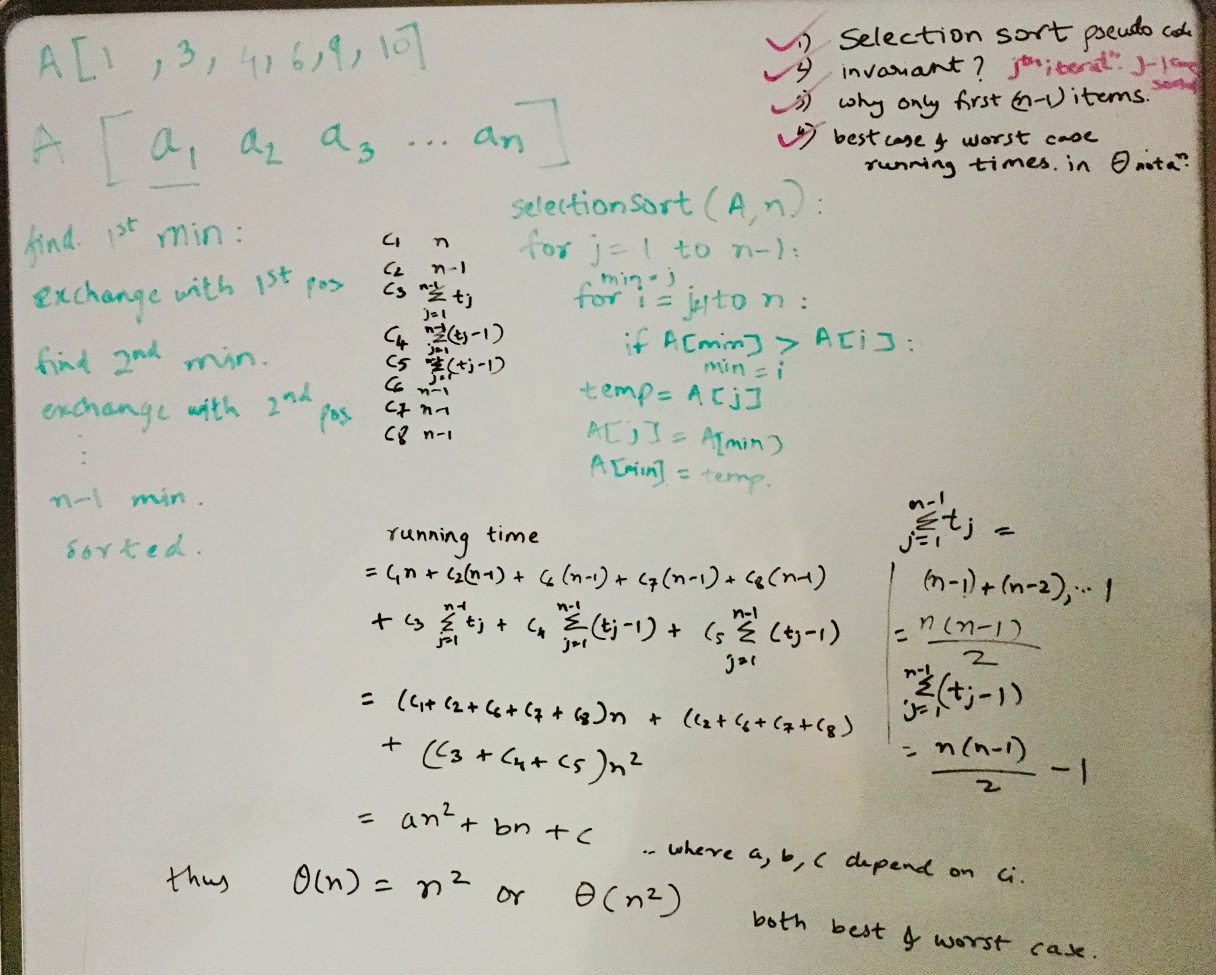 A[1, 3, 4, 6, 9, 10]
A [ a₁ a₂ a₃ ... an ]
1) Selection sort pseudo code
2) invariant? jth iteratⁿ. j-1 are sorted
3) why only first (n-1) items.
4) best case & worst case
running times. in Θ notaⁿ.
find 1st min:
exchange with 1st pos
find 2nd min.
exchange with 2nd pos.
:
n-1 min.
sorted.
C1 n
C2 n-1
C3 n-1 Σ j=1 tj
C4 n-1 Σ j=1 (tj-1)
C5 n-1 Σ j=1 (tj-1)
C6 n-1
C7 n-1
C8 n-1
selectionSort (A, n):
for j = 1 to n-1:
min = j
for i = j+1 to n:
if A[min] > A[i]:
min = i
temp = A[j]
A[j] = A[min]
A[min] = temp.
running time
= C1n + C2(n-1) + C6(n-1) + C7(n-1) + C8(n-1)
+ C3 n-1 Σ j=1 tj + C4 n-1 Σ j=1 (tj-1) + C5 n-1 Σ j=1 (tj-1)
= (C1+C2+C6+C7+C8)n + (C2+C6+C7+C8)
+ (C3+C4+C5)n²
= an² + bn + c .. where a, b, c depend on ci.
thus Θ(n) = n² or Θ(n²)
both best & worst case.
n-1 Σ j=1 tj =
(n-1)+(n-2), ... 1
= n(n-1)/2
n-1 Σ j=1 (tj-1)
= n(n-1)/2 - 1